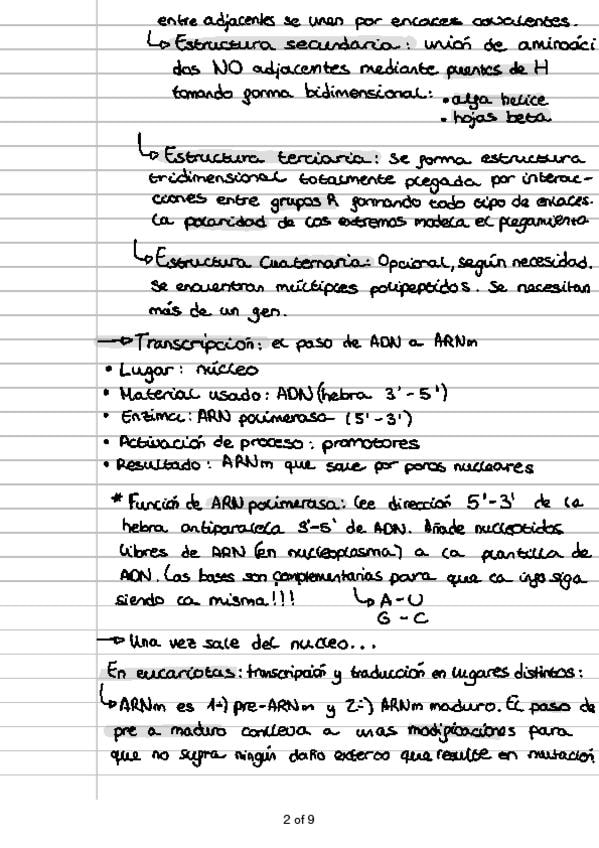 entre adjacentes se unen por enlaces covalentes.
↳ Estructura secundaria: unión de aminoáci
dos NO adjacentes mediante puentes de H
tomando forma bidimensional: • alfa helice
• hojas beta
↳ Estructura terciaria: Se forma estructura
tridimensional totalmente plegada por interac-
ciones entre grupos R formando todo tipo de enlaces.
La polaridad de los extremos modela el plegamiento
↳ Estructura Cuaternaria: Opcional, según necesidad.
Se encuentran múltiples polipeptidos. Se necesitan
más de un gen.
→ Transcripción: el paso de ADN a ARNm
• Lugar: núcleo
• Material usado: ADN (hebra 3'-5')
• Enzima: ARN polimerasa (5'-3')
• Activación de proceso: promotores
• Resultado: ARNm que sale por poros nucleares
* Función de ARN polimerasa: lee dirección 5'-3' de la
hebra antiparalela 3'-5' de ADN. Añade nucleotidos
libres de ARN (en nucleoplasma) a la plantilla de
ADN. Las bases son complementarias para que la info siga
siendo la misma!!! ↳ A-U
G-C
→ Una vez sale del nucleo...
En eucariotas: transcripción y traducción en lugares distintos:
↳ ARNm es 1º) pre-ARNm y 2º) ARNm maduro. El paso de
pre a maduro conlleva a unas modificaciones para
que no sufra ningún daño externo que resulte en mutación
2 of 9